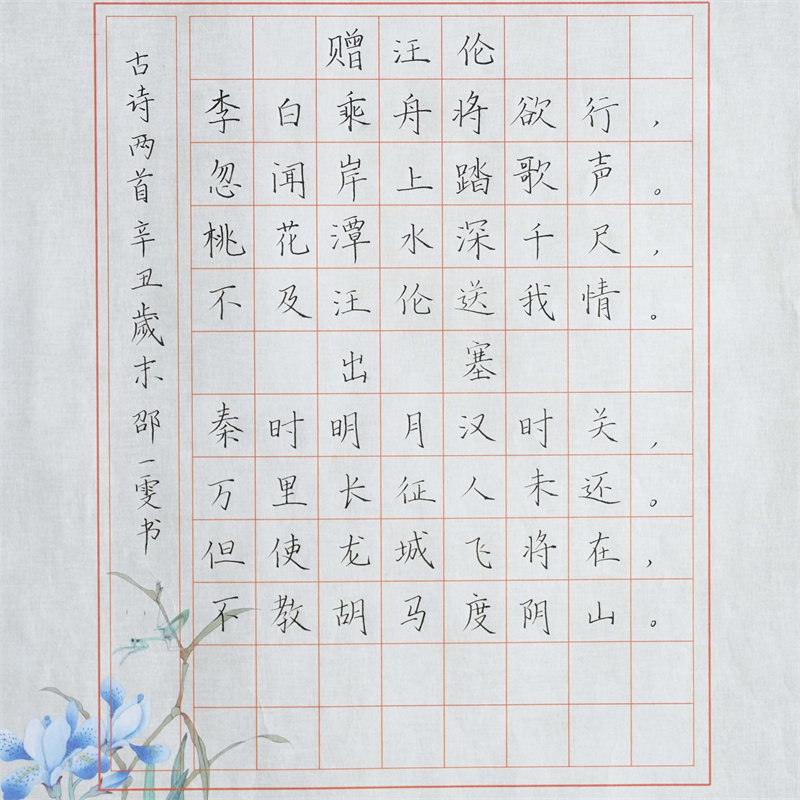 赠汪伦
李白乘舟将欲行，
忽闻岸上踏歌声。
桃花潭水深千尺，
不及汪伦送我情。
出塞
秦时明月汉时关，
万里长征人未还。
但使龙城飞将在，
不教胡马度阴山。
古诗两首辛丑歲末邵一雯书